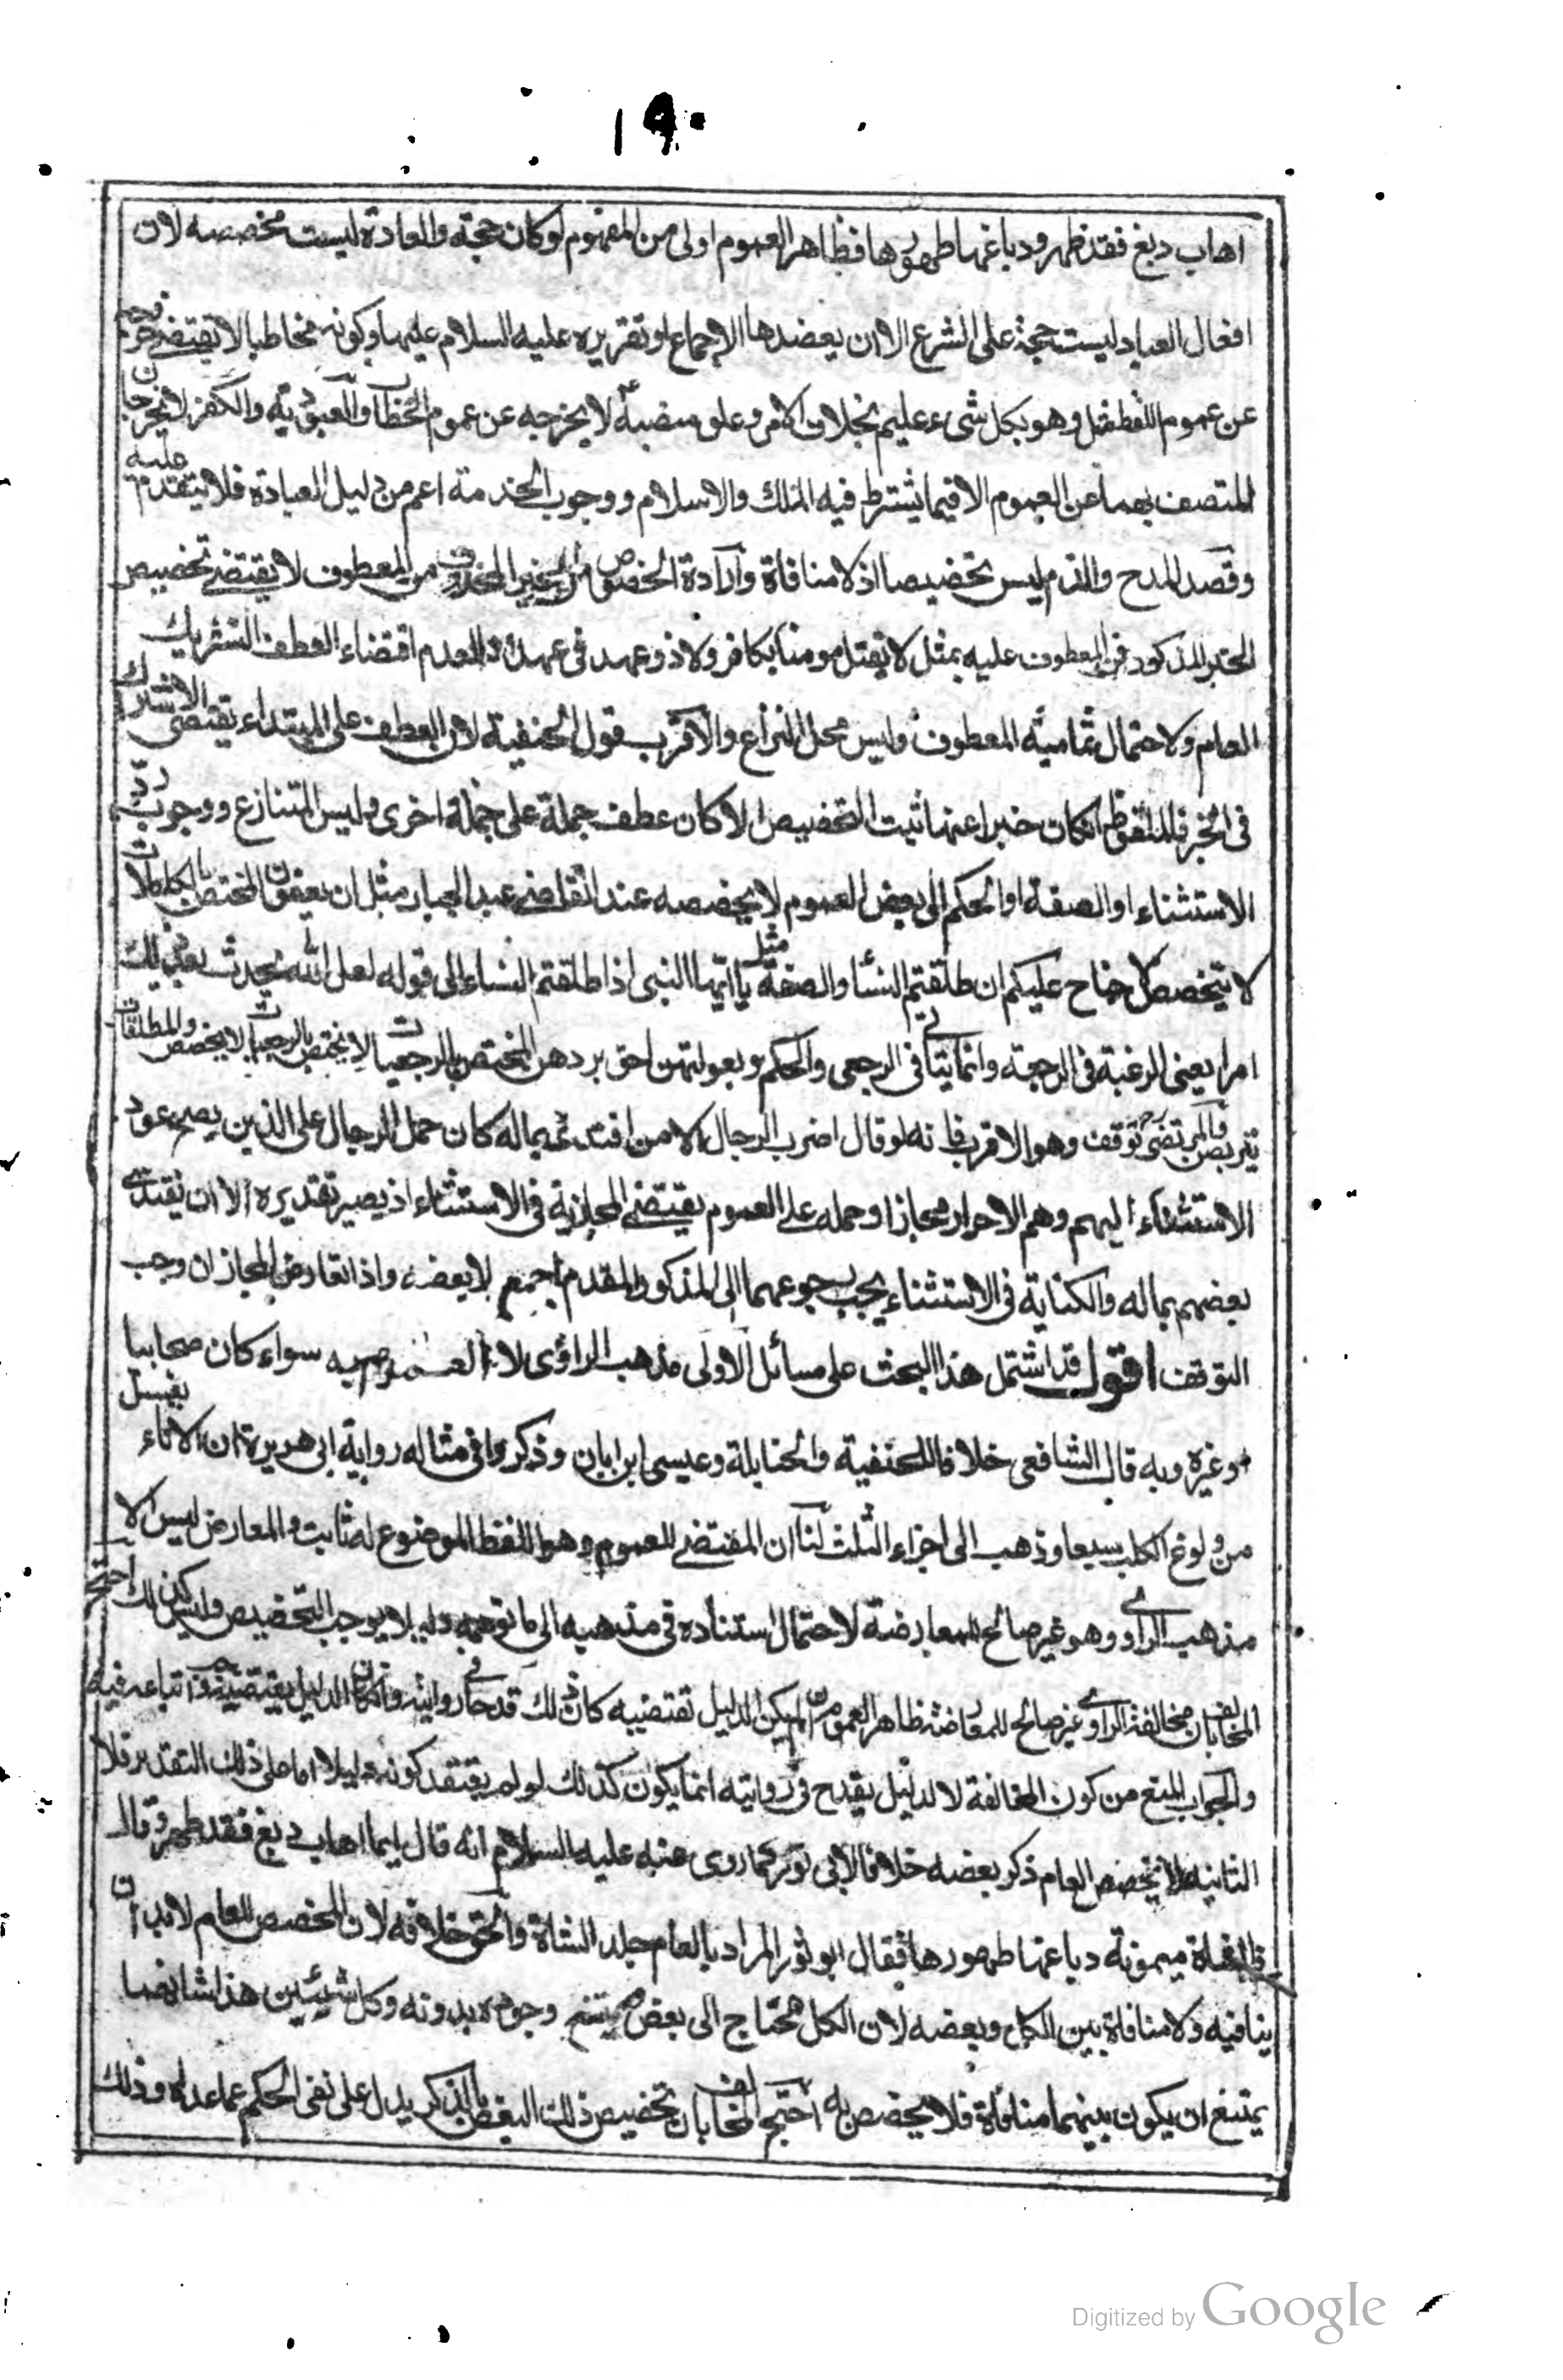 ١٩٠
اهاب دبغ فقد طهر ودباغها طهورها فظاهر العموم اولى من المفهوم لو كان حجة والعادة ليست مخصصه لان
افعال العباد ليست حجة على الشرع الا ان يعضدها الاجماع او تقريره عليه السلام عليها وكونه مخاطبا لا يقتضي خروجه
عن عموم اللفظ مثل وهو بكل شيء عليم بخلاف الامر وعلو منصبه لا يخرجه عن عموم الخطاب والعبودية والكفر لا يخرجان
المتصف بهما عن العموم الا فيما يشترط فيه الملك والاسلام ووجوب الخدمة اعم من دليل العبادة فلا يتقدم عليه
وقصد المدح والذم ليس تخصيصا اذ لا منافاة وارادة الخصوص من الخبر المحذوف من المعطوف لا يقتضي تخصيص
الخبر المذكور في المعطوف عليه بمثل لا يقتل مومن بكافر ولا ذو عهد في عهده لعدم اقتضاء العطف التشريك
العام ولاحتمال تمامية المعطوف وليس محل النزاع والاقرب قول الحنفية لان العطف على المبتداء يقتضى الاشتراك
في الخبر فالملفوظ ان كان خبرا عنها ثبت التخصيص والا كان عطف جملة على جملة اخرى وليس المتنازع ووجوب ردّ
الاستثناء او الصفة او الحكم الى بعض العموم لا يخصصه عند القاضي عبد الجبار مثل ان يعفون المختص بالكاملات
لا يتخصص لا جناح عليكم ان طلقتم النسا والصفة مثل يا ايها النبي اذا طلقتم النساء الى قوله لعل الله يحدث بعد ذلك
امرا يعني الرغبة في الرجعة وانما يتاتى في الرجعي والحكم وبعولتهن احق بردهن المختص بالرجعيات لا يختص بالرجعيات لا يخصص والمطلقات
يتربصن والمرتضى توقف وهو الاقرب فانه لو قال اضرب الرجال الا من افتدى بماله كان حمل الرجال على الذين يصح عود
الاستثناء اليهم وهم الاحرار مجازا وحمله على العموم يقتضي المجازية في الاستثناء اذ يصير تقديره الا ان يفتدى
بعضهم بماله والكناية في الاستثناء يجب رجوعهما الى المذكور المقدم اجمع لا بعضه واذا تعارض المجازان وجب
التوقف اقول قد اشتمل هذا البحث على مسائل الاولى مذهب الراوى لا العموم به سواء كان صحابيا
وغيره وبه قال الشافعي خلافا للحنفية والحنابلة وعيسى ابن ابان وذكروا في مثاله رواية ابى هريرة ان الاناء يغسل
من ولوغ الكلب سبعا وذهب الى اجزاء الثلث لنا ان المقتضي للعموم وهو اللفظ الموضوع له ثابت والمعارض ليس الا
مذهب الراوي وهو غير صالح للمعارضة لاحتمال استناده في مذهبه الى ما توهمه دليلا يوجب التخصيص وليس كذلك احتج
المخالف بان مخالفة الراوي غير صالح للمعارضة ظاهر العموم ان لم يكن لدليل تقتضيه كان ذلك قدحا في روايته وان كان لدليل يقتضيه وجب اتباعه فيه
والجواب المنع من كون المخالفة لا لدليل يقدح في روايته انما يكون كذلك لو لم يعتقد كونه دليلا اما على ذلك التقدير فلا
الثانية لا يخصص العام ذكر بعضه خلافا لابي ثور كما روى عنه عليه السلام انه قال ايما اهاب دبغ فقد طهر وقال
في شاة ميمونة دباغها طهورها فقال ابو ثور المراد بالعام جلد الشاة والحق خلافه لان المخصص للعام لابد ان
ينافيه ولا منافاة بين الكل وبعضه لان الكل محتاج الى بعض يمتنع وجوده بدونه وكل شيئين هذا شانهما
يمتنع ان يكون بينهما منافاة فلا يخصص به احتج المخالف بان تخصيص ذلك البعض بالذكر يدل على نفى الحكم عما عداه وذلك
Digitized by Google